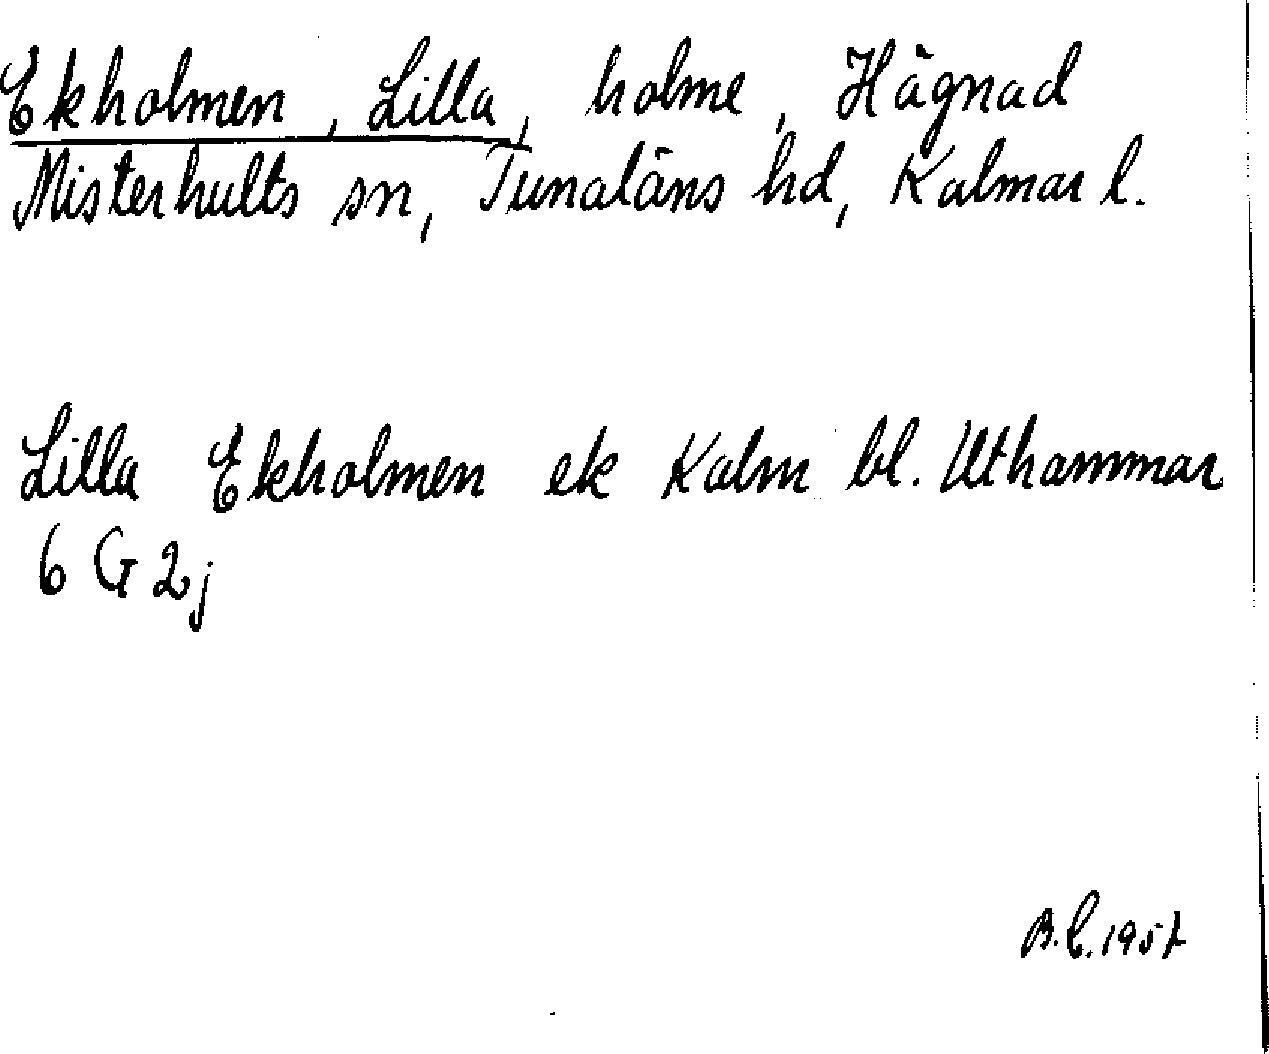 Ekholmen, Lilla, holme, Hägnad
Misterhults sn, Tunaläns hd, Kalmar l.
Lilla Ekholmen ek Kalm bl. Uthammar
6 G 2j
B.C. 1957